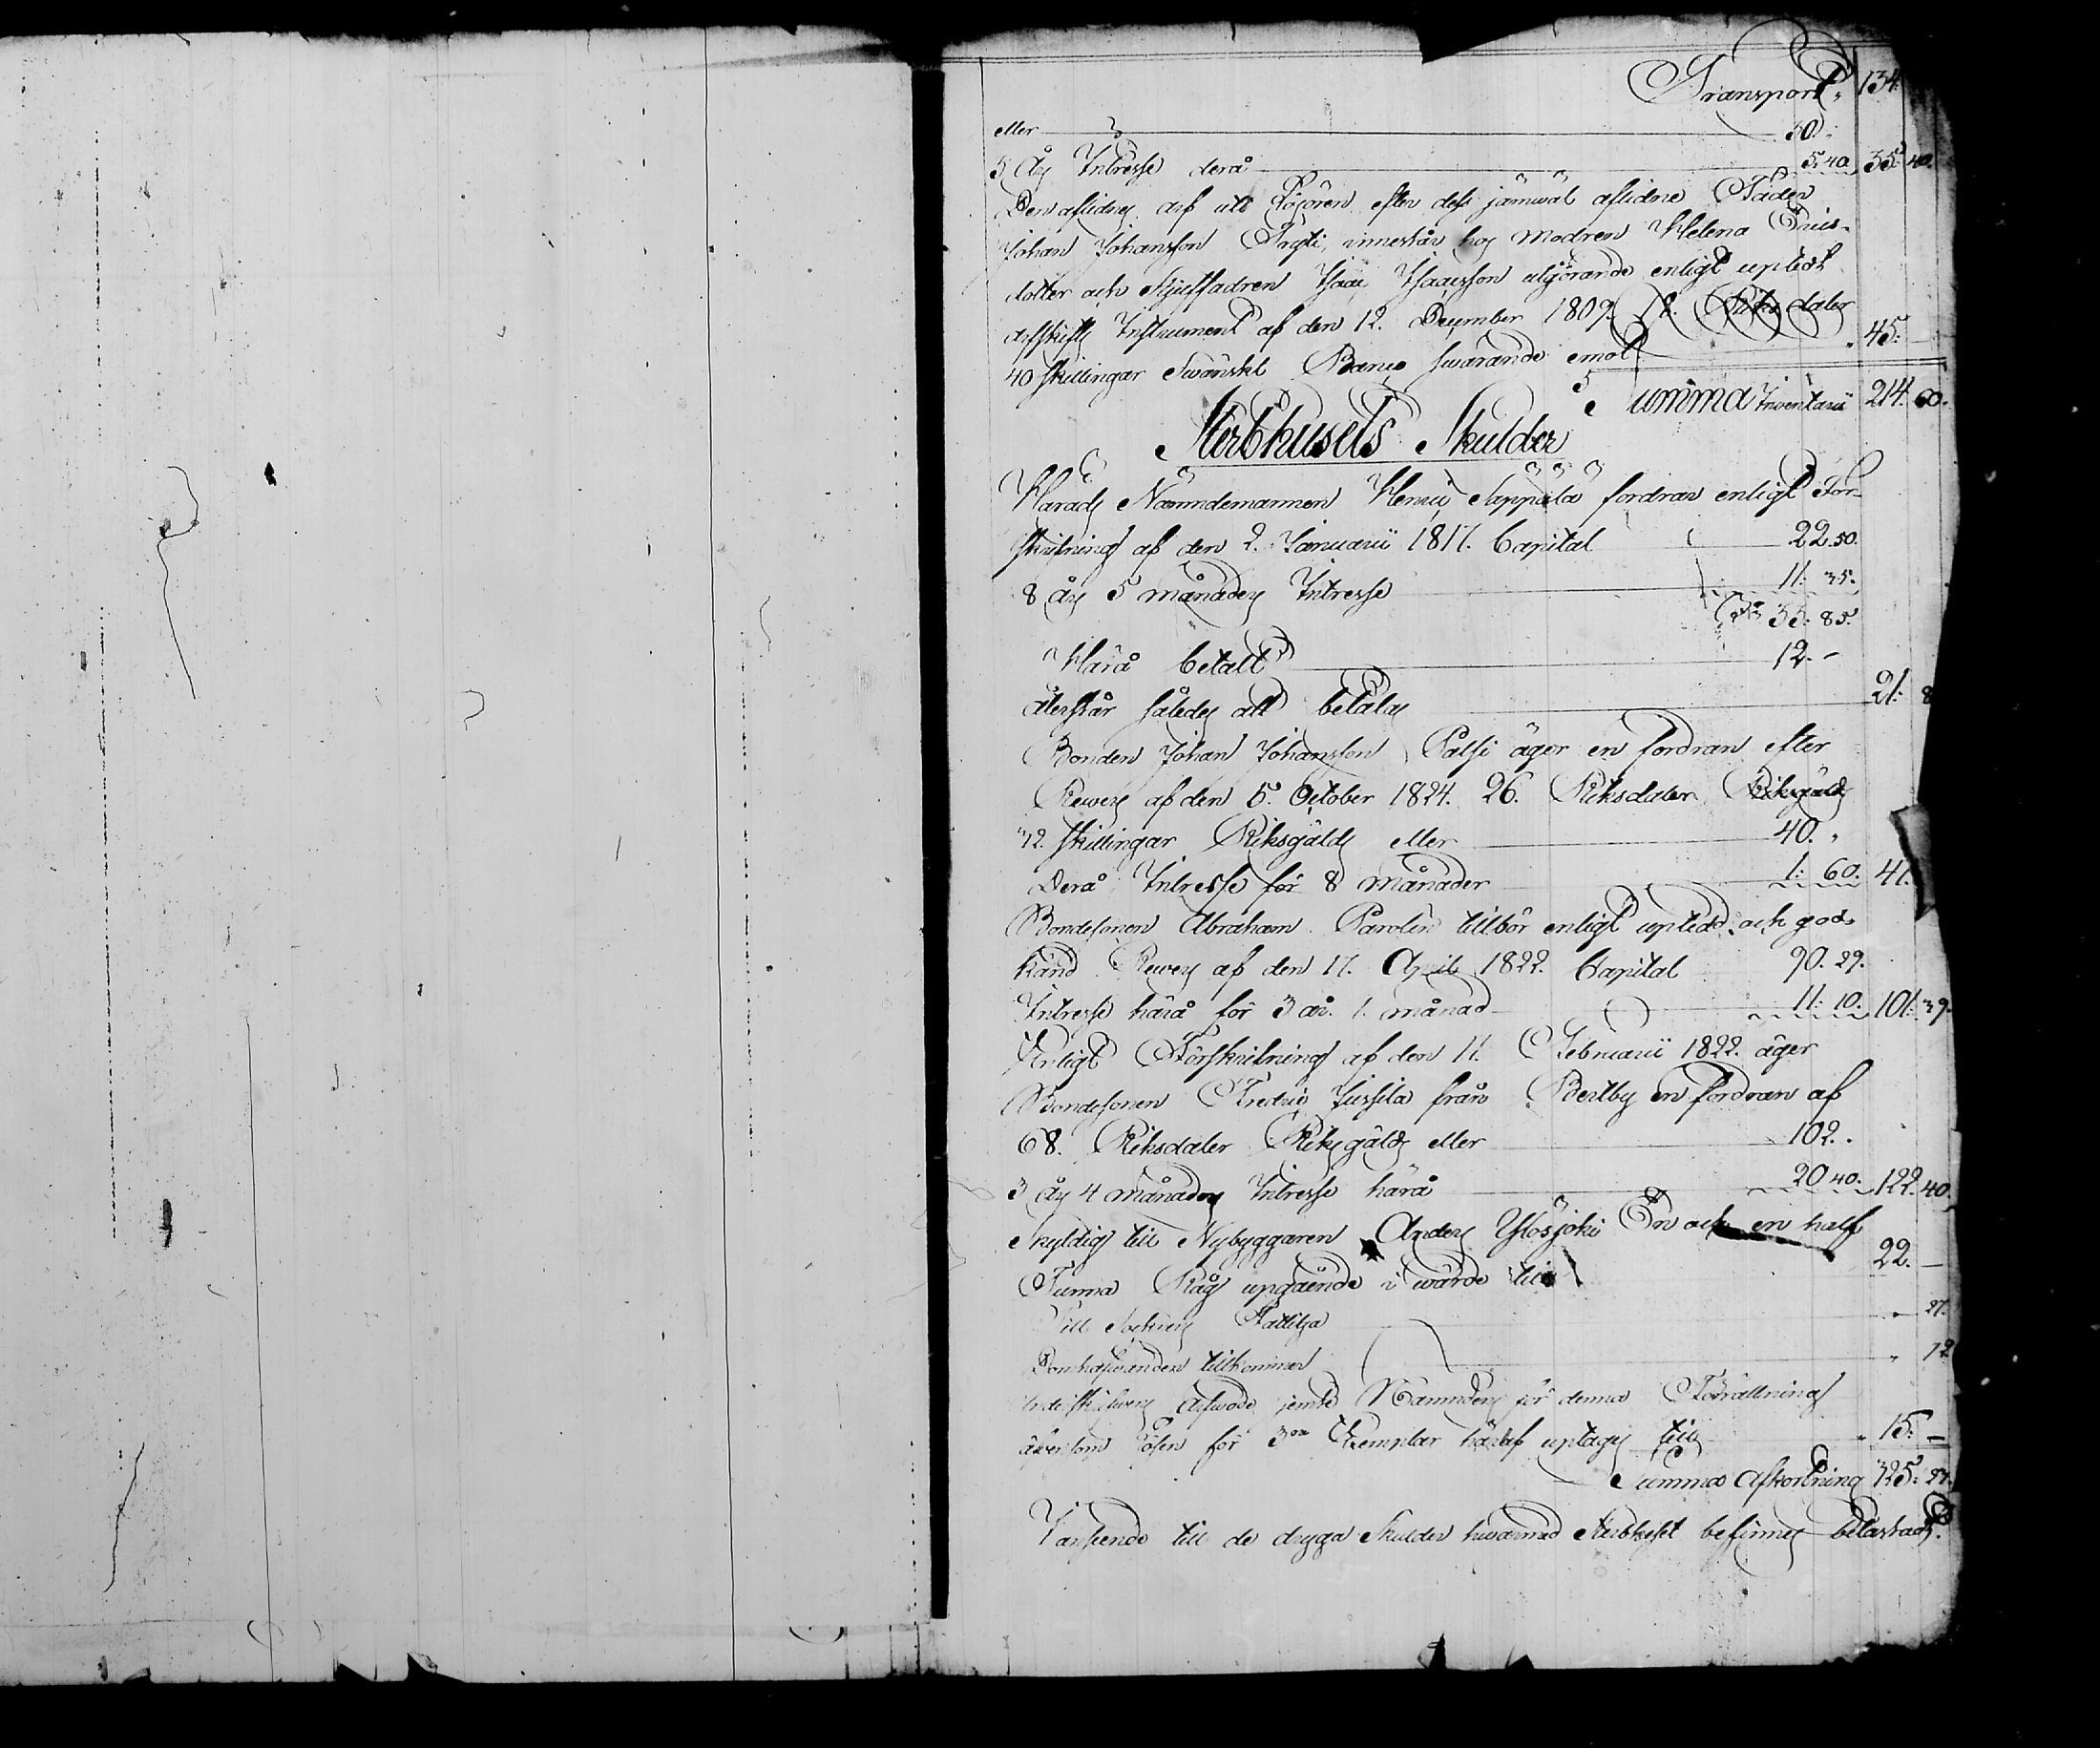 Transport, 134.
eller 30.
3 Års Intresse derå 5. 40. 35. 40.
Den aflidnes arf uti efter dess jämwäl aflidne Fader
Johan Johansson innestår hos Modren Helena
dotter och Stjuffadren Isaac Isaacsson utgörande enligt uptedt
arfskifts Instrument af den 12. December 1809. 18. Riksdaler
40 skillingar Swänskt Banco swarande emot 45.
Summa Inventarii 214.
Sterbhusets Skulder
Härads Nämndemannen Henric Seppälä fordran enligt För-
skrifning af den 2. Januarii 1817. Capital 22. 50.
8 års 5 månaders Intresse 11. 35.
33. 85.
Härå betalt 12. -
återstår således att betalas 21. 8
Bonden Johan Johansson Palsi äger en fordran efter
Revers af den 5. October 1824. 26. Riksdaler Riksgälds
32. skillingar Riksgälds eller 40. "
Derå Intresse för 8 månader 1. 60. 41.
Bondesonen Abraham tillhör enligt uptedd och god-
känd Revers af den 17. April 1822. Capital 90. 29.
Intresse härå för 3 år. 1. månad 11. 10. 101. 39.
Enligt Förskrifning af den 11. Februarii 1822. äger
Bondesonen Fredric Jussila från en fordran af
68. Riksdaler Riksgälds eller 102. .
3 års 4 månaders Intresse härå 20 40. 122. 40.
Skyldig till Nybyggaren Anders Ylösjoki En och en half
Tunna Råg upgående i wärde till 22. -
Till Sochnens Fattiga " 27.
tillkommer " 12
jemte Nämndens för denna Förrättning
äfwensom Lösen för 3ne Exemplar häraf uptages till " 15. -
Summa Afkortning 325. 27.
I anseende till de dryga Skulder hwarmed Sterbhuset befinnes belastadt.